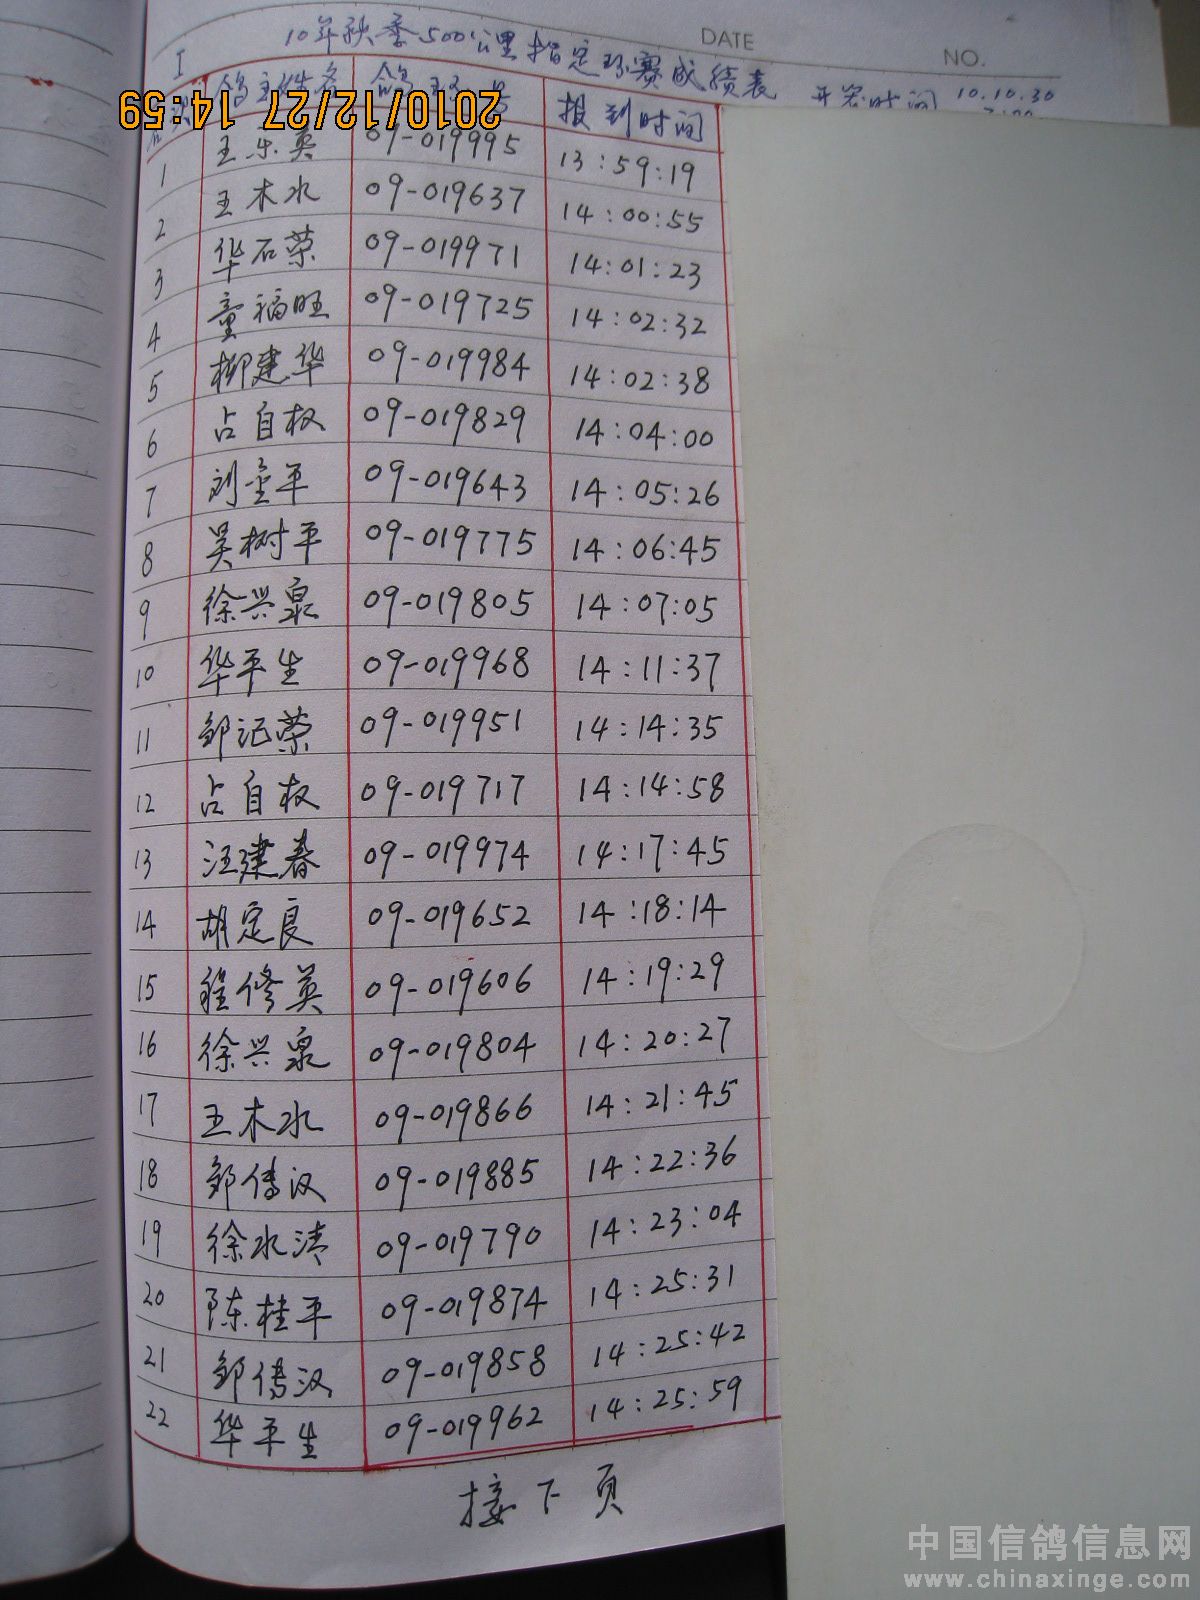 DATE
NO.
I 10年秋季500公里指定环赛成绩表 开笼时间 10.10.30
鸽主姓名 鸽环号 报到时间
2010/12/27 14:59
1 王乐英 09-019995 13:59:19
2 王木水 09-019637 14:00:55
3 华石荣 09-019971 14:01:23
4 童福旺 09-019725 14:02:32
5 柳建华 09-019984 14:02:38
6 占自权 09-019829 14:04:00
7 刘金平 09-019643 14:05:26
8 吴树平 09-019775 14:06:45
9 徐兴泉 09-019805 14:07:05
10 华平生 09-019968 14:11:37
11 邹记荣 09-019951 14:14:35
12 占自权 09-019717 14:14:58
13 汪建春 09-019974 14:17:45
14 胡定良 09-019652 14:18:14
15 程修英 09-019606 14:19:29
16 徐兴泉 09-019804 14:20:27
17 王木水 09-019866 14:21:45
18 邹传汉 09-019885 14:22:36
19 徐水清 09-019790 14:23:04
20 陈桂平 09-019874 14:25:31
21 邹传汉 09-019858 14:25:42
22 华平生 09-019962 14:25:59
接下页
中国信鸽信息网
www.chinaxinge.com